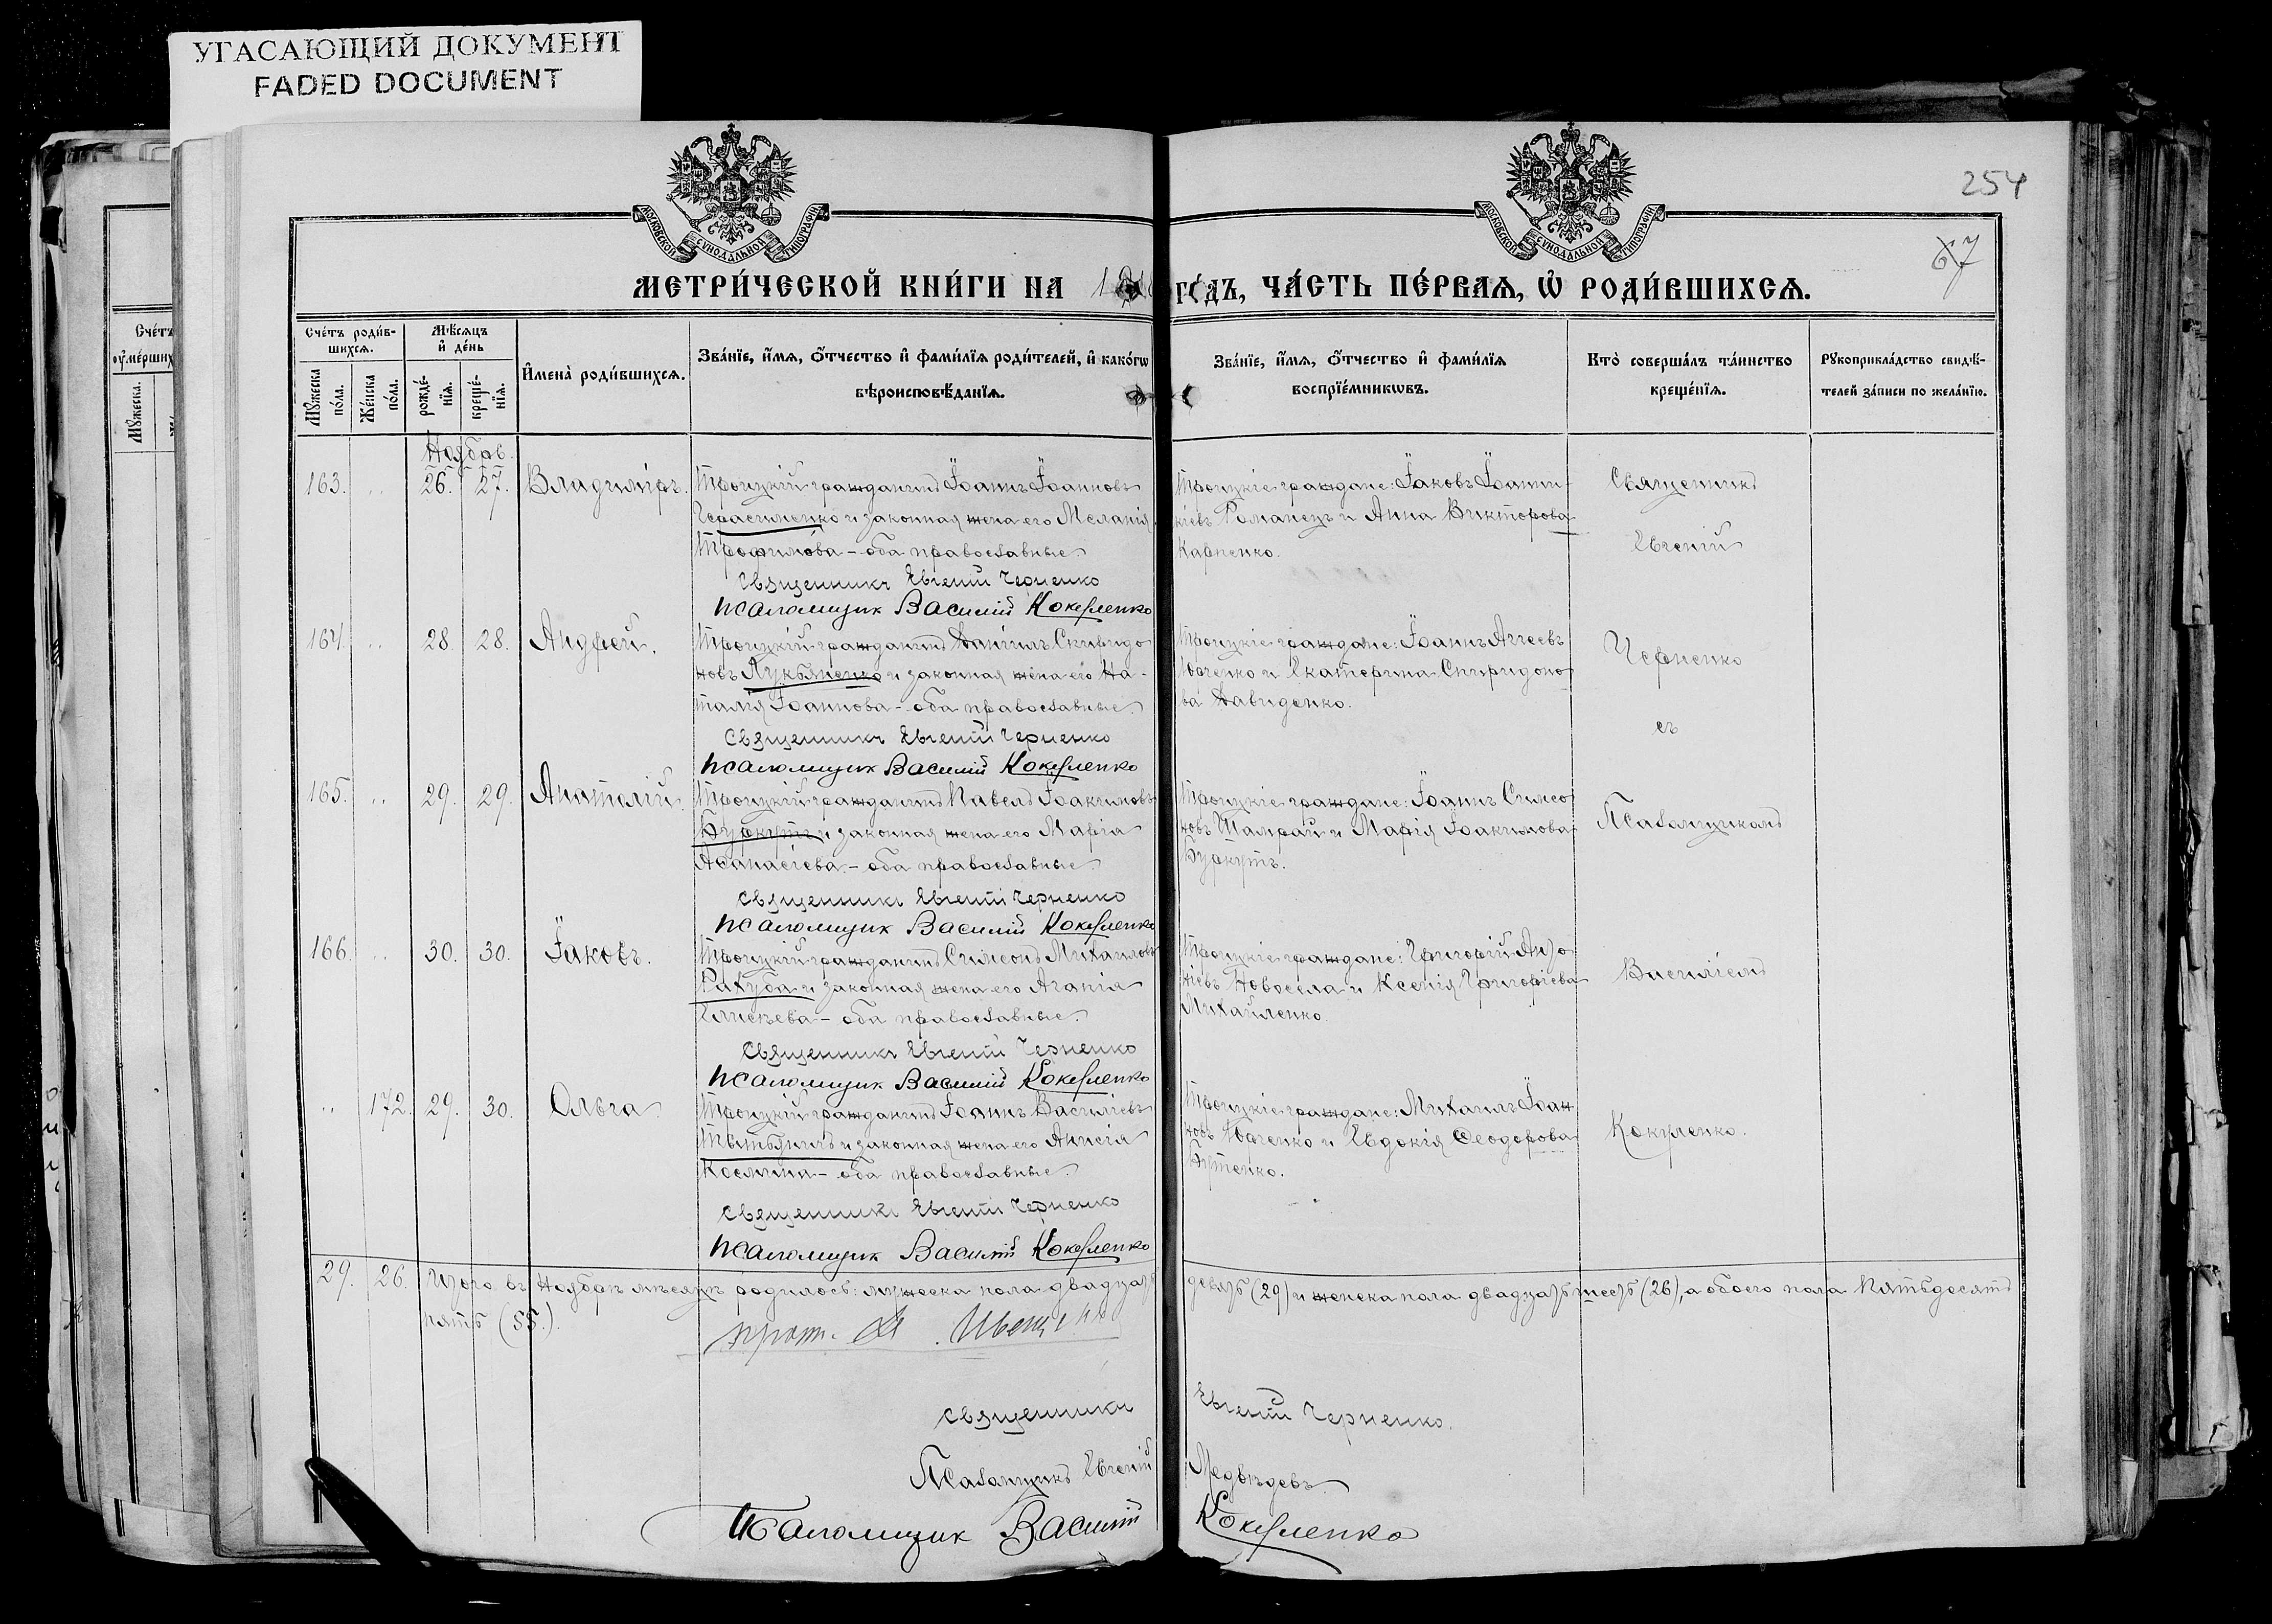 УГАСАЮЩИЙ ДОКУМЕНТ
FADED DOCUMENT
254
67
МОСКОВСКОЙ СУНОДАЛЬНОЙ ТИПОГРАФІИ
МОСКОВСКОЙ СУНОДАЛЬНОЙ ТИПОГРАФІИ
МЕТРИ́ЧЕСКОЙ КНИ́ГИ НА
ГО́ДЪ, ЧА́СТЬ ПЕ́РВАѦ, Ѽ РОДИ́ВШИХСѦ.
Сче́тъ роди́в-
шихсѧ.
Мꙋ́жеска по́ла.
Же́нска по́ла.
Мѣ́сѧцъ
и҆ де́нь
рожде́-
нїѧ.
креще́-
нїѧ.
И҆мена̀ роди́вшихсѧ.
Зва́нїе, и҆́мѧ, ѻ҆́тчество и҆ фами́лїѧ роди́телей, и҆ како́гѡ
вѣроисповѣ́данїѧ.
Зва́нїе, и҆́мѧ, ѻ҆́тчество и҆ фами́лїѧ
воспрїе́мникѡвъ.
Кто̀ соверша́лъ та́инство
креще́нїѧ.
Рꙋкоприкла́дство свидѣ́-
телей за́писи по жела́нїю.
Сче́тъ
оу҆ме́ршихъ
Мꙋ́жеска.
Ноябрь.
163. 26. 27. Владиміръ.
Троицкій гражданинъ Іоаннъ Іоанновъ
Герасименко и законная жена его Меланія
Трофимова – оба православные.
Священникъ Евгеній Черненко
Псаломщик Василий Кокуленко
Троицкіе граждане: Іаковъ Іоанни-
кіевъ Романецъ и Анна Викторова
Карпенко.
Священникъ
Евгеній
164. 28. 28. Андрей.
Троицкій гражданинъ Даніилъ Спиридо
новъ Лукьяненко и законная жена его На-
талія Іоаннова – оба православные.
Священникъ Евгеній Черненко
Псаломщик Василий Кокуленко
Троицкіе граждане: Іоаннъ Аггеевъ
Ивченко и Екатерина Спиридоно
ва Давиденко.
Черненко
съ
165. 29. 29. Анатолій.
Троицкій гражданинъ Павелъ Іоакимовъ
Буркутъ и законная жена его Марія
Аѳанасіева – оба православные.
Священникъ Евгеній Черненко
Псаломщик Василий Кокуленко
Троицкіе граждане: Іоаннъ Симео
новъ Шамрай и Марія Іоакимова
Буркутъ.
Псаломщикомъ
166. 30. 30. Іаковъ.
Троицкій гражданинъ Симеонъ Михаиловъ
Рахуба и законная жена его Агапія
Елисѣева – оба православные.
Священникъ Евгеній Черненко
Псаломщик Василий Кокуленко
Троицкіе граждане: Григорій Анто
ніевъ Новосела и Ксенія Григоріева
Михайленко.
Василіемъ
172. 29. 30. Ольга.
Троицкій гражданинъ Іоаннъ Василіевъ
и законная жена его Анисія
Космина – оба православные.
Священникъ Евгеній Черненко
Псаломщик Василий Кокуленко
Троицкіе граждане: Михаилъ Іоан
новъ Ивченко и Евдокія Ѳеодорова
Бутенко.
Кокуленко.
29. 26. Итого въ Ноябрѣ мѣсяцѣ родилось: мужеска пола двадцать девять (29) и женска пола двадцать шесть (26), а обоего пола пятьдесятъ
пять (55.).
прот. Ивещенко
Священникъ Евгеній Черненко.
Псаломщикъ Евгеній Медвѣдевъ.
Псаломщик Василий Кокуленко